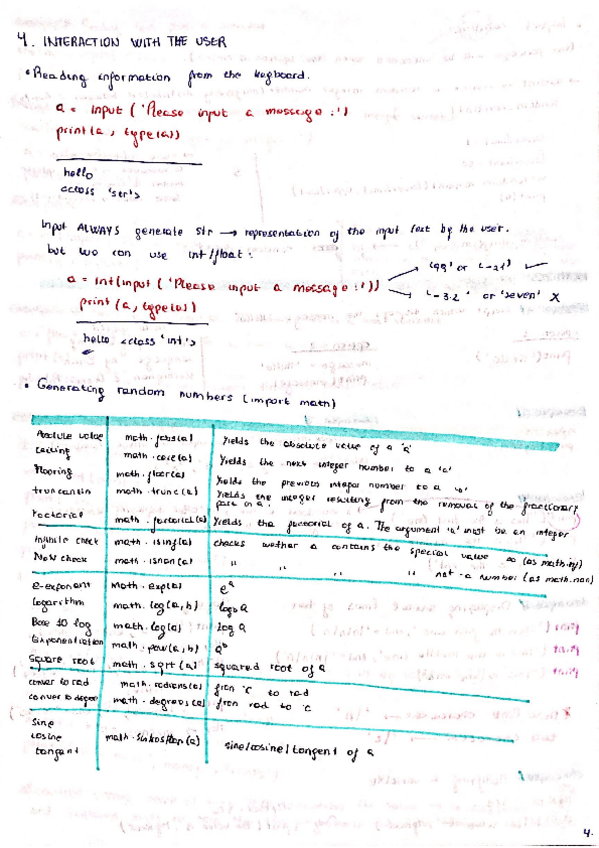 4. INTERACTION WITH THE USER
• Reading information from the keyboard.
a = input ('Please input a message :')
print(a, type(a))
hello
<class 'str'>
Input ALWAYS generate str → representation of the input text by the user.
but we can use int/float:
a = int(input ('Please input a message :')) '99' or '-21' ✓
print (a, type(a)) '-3.2' or 'seven' X
hello <class 'int'>
• Generating random numbers (import math)
Absolute value math.fabs(a) Yields the absolute value of a 'a'
Ceiling math.ceil(a) Yields the next integer number to a 'a'
Flooring math.floor(a) Yields the previous integer number to a 'a'
truncantin math.trunc(a) Yields the integer resulting from the removal of the fractionary
part in a.
Factorial math.factorial(a) Yields the factorial of a. The argument 'a' must be an integer
Infinite check math.isinf(a) checks wether a contains the special value ∞ (as math.inf)
NaN check math.isnan(a) " " " " not-a number (as math.nan)
e-exponent math.exp(a) eᵃ
logarithm math.log(a,b) logb a
Base 10 log math.log(a) log a
Exponentiation math.pow(a,b) aᵇ
Square root math.sqrt(a) squared root of a
conver to rad math.radians(a) from °C to rad
conver to degree math.degrees(a) from rad to °C
Sine
cosine math.sin/cos/tan(a) sine/cosine/tangent of a
tangent
4.